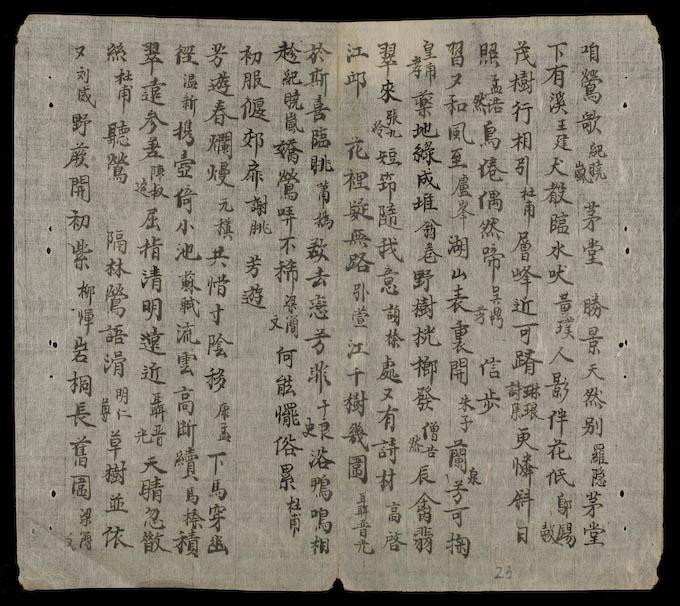 咱鶯歌 紀曉嵐 茅堂 勝景天然別 羅隱 茅堂
下有溪 王建 犬散臨水吠 黃璞 人影伴花低 歐陽
茂樹行相引 杜甫 層峰近可躋 更憐斜日
照 孟浩然 鳥倦偶然啼 吳鼎芳 信步
習又和風至 盧峯 湖山表裏開 朱子 蘭泉芳可掬
皇甫 藥地綠成堆 翁卷 野樹桄榔發 僧 辰禽翡
翠來 張九齡 短筇隨我意 胡榛 處又有詩材 高啓
江邨 花裡疑無路 引萱 江千樹幾園 聶晉光
於斯喜臨眺 欲去戀芳菲 于良史 浴鴨鳴相
趁 紀曉嵐 嬌鶯哢不稀 梁簡文 何能擺俗累 杜甫
初服偃郊扉 謝朓 芳遊
芳遊春爛熳 元稹 共惜寸陰移 康孟 下馬穿幽
徑 溫新 携壺倚小池 蘇軾 流雲高斷續 馬榛 積
翠遠參差 陳叔達 屈指清明遠近 聶晉光 天晴忽散
絲 杜甫 聽鶯 隔林鶯語滑 明仁尊 草樹並依
又 刘威 野蕨開初紫 柳惲 岩桐長舊圍 梁簡文
23